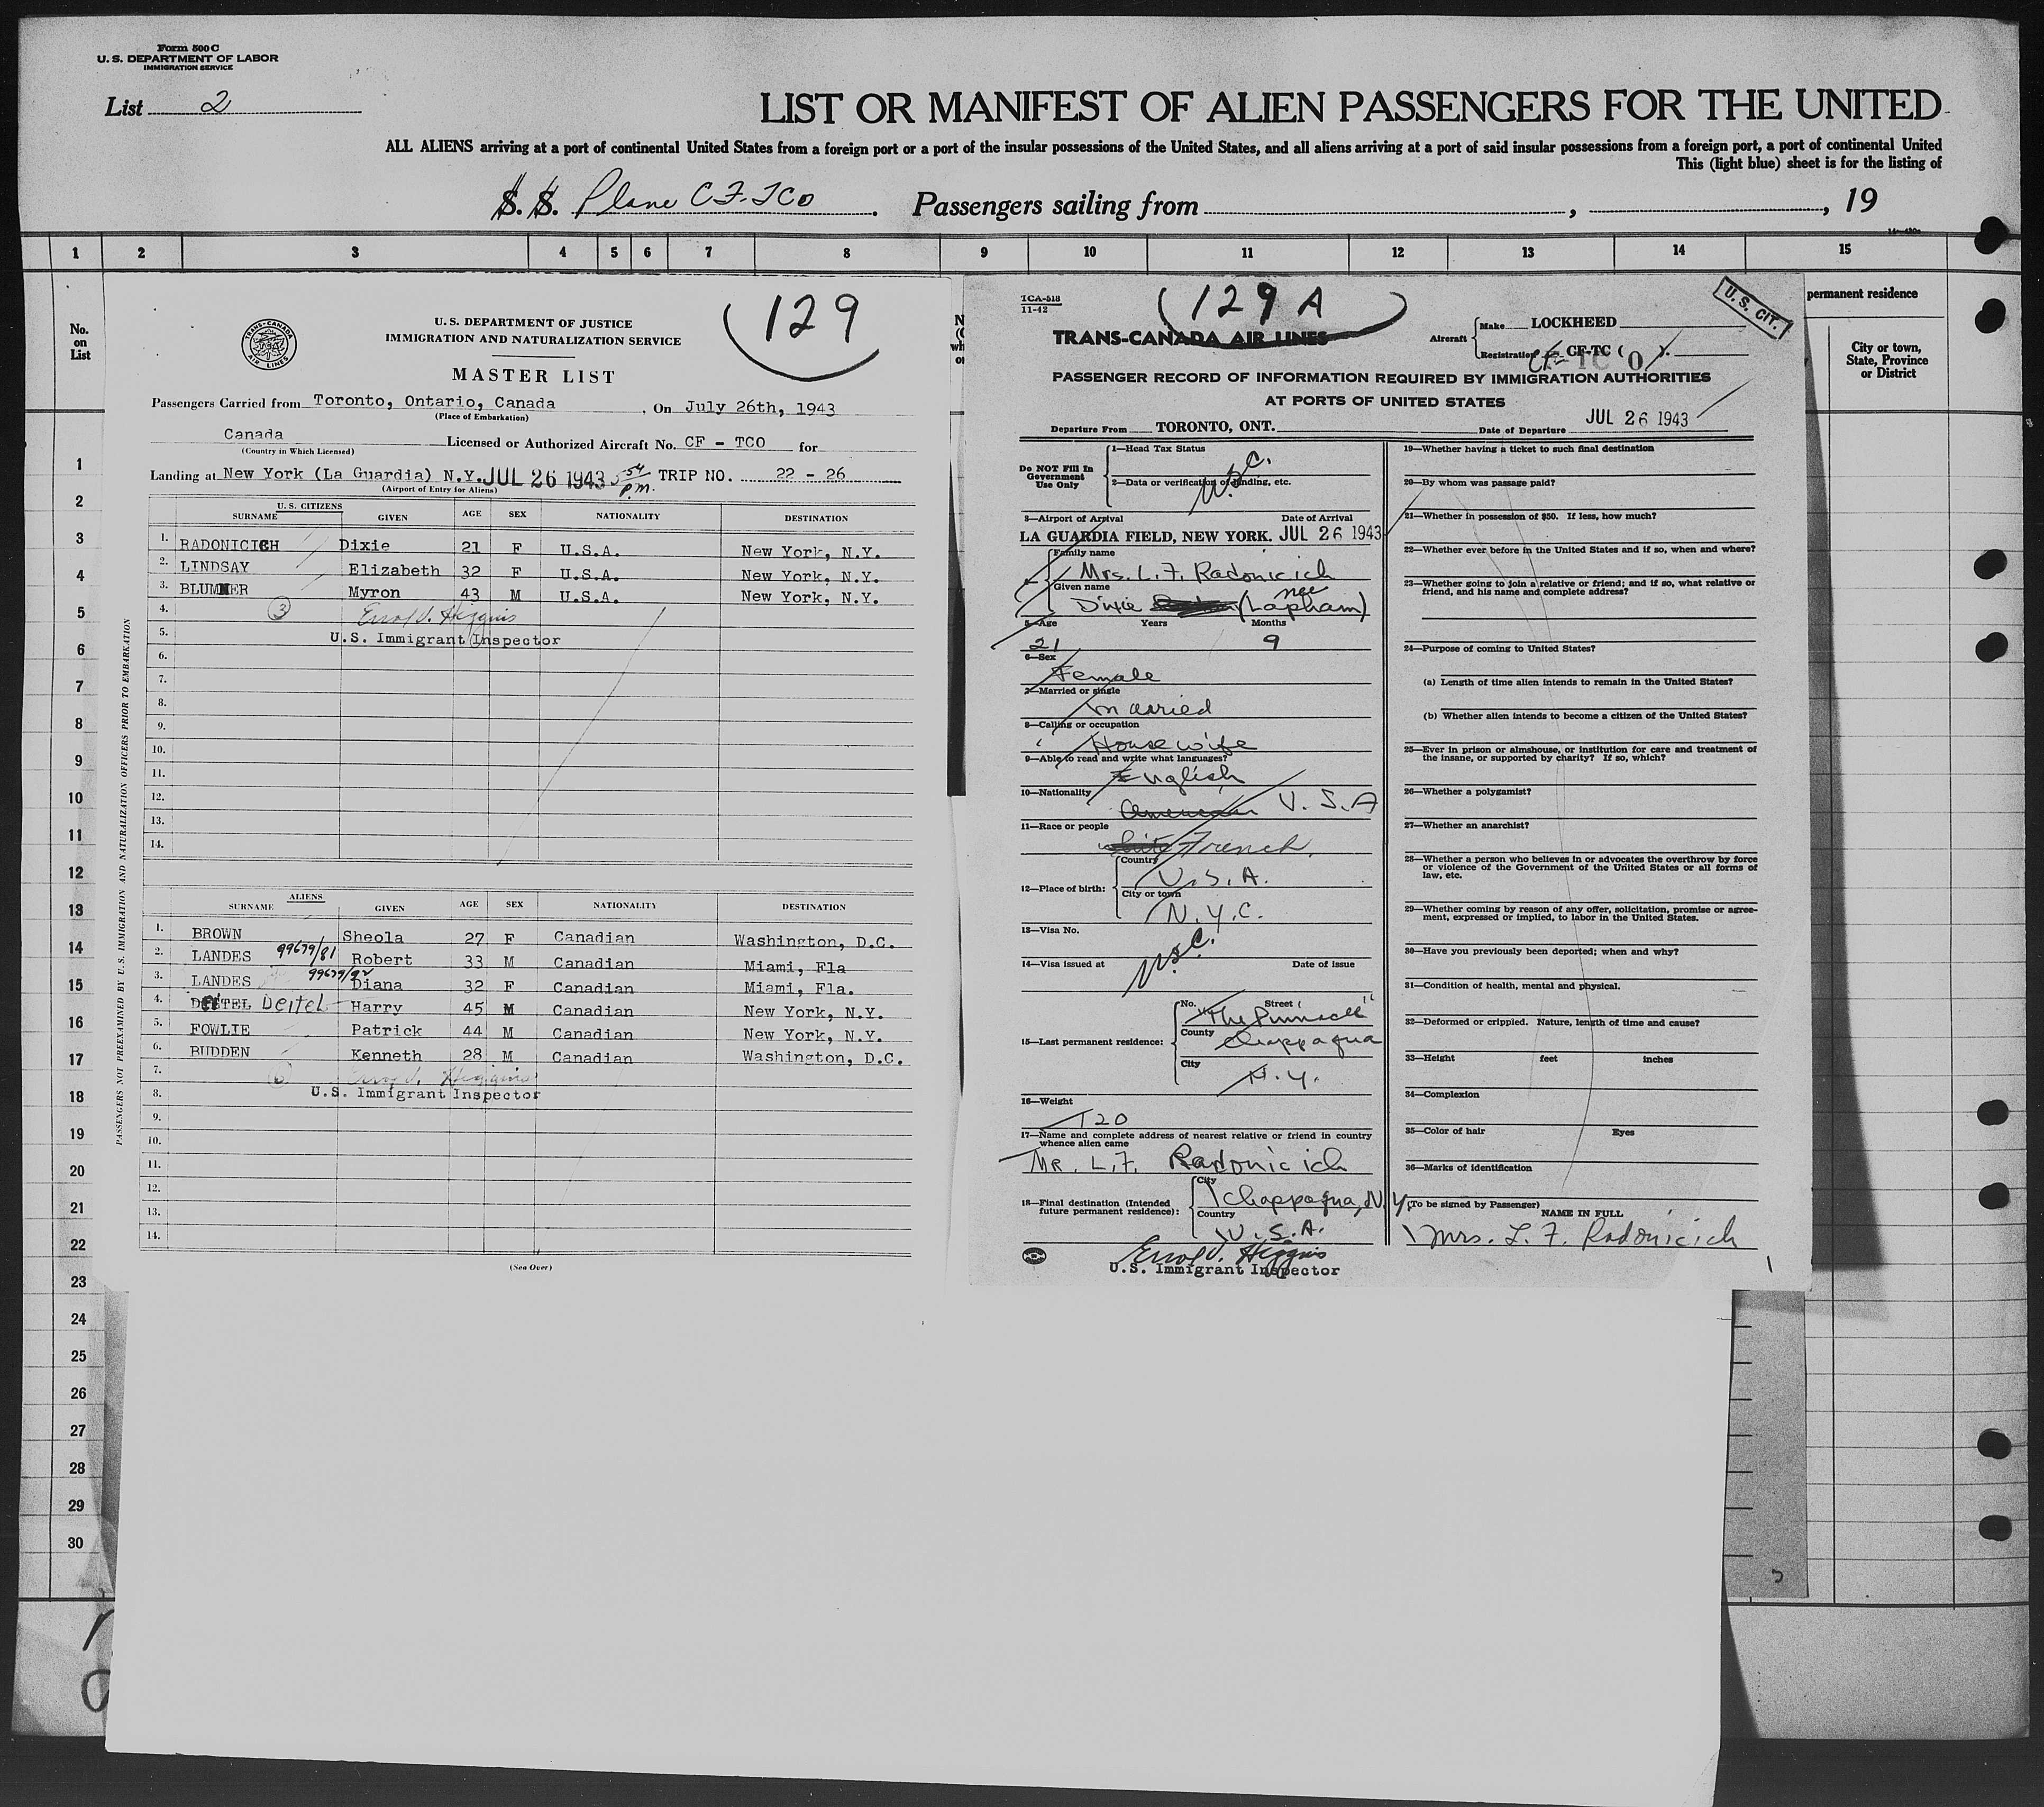 Form 500 C
U. S. DEPARTMENT OF LABOR
IMMIGRATION SERVICE
List 2
LIST OR MANIFEST OF ALIEN PASSENGERS FOR THE UNITED
ALL ALIENS arriving at a port of continental United States from a foreign port or a port of the insular possessions of the United States, and all aliens arriving at a port of said insular possessions from a foreign port, a port of continental United
This (light blue) sheet is for the listing of
S. S. Plane CF-TCO. Passengers sailing from , , 19
1 2 3 4 5 6 7 8 9 10 11 12 13 14 15
No. on List
permanent residence
City or town, State, Province or District
1
2
3
4
5
6
7
8
9
10
11
12
13
14
15
16
17
18
19
20
21
22
23
24
25
26
27
28
29
30
TRANS-CANADA AIR LINES
129
U. S. DEPARTMENT OF JUSTICE
IMMIGRATION AND NATURALIZATION SERVICE
MASTER LIST
Passengers Carried from Toronto, Ontario, Canada, On July 26th, 1943
(Place of Embarkation)
Canada Licensed or Authorized Aircraft No. CF - TCO for
(Country in Which Licensed)
Landing at New York (La Guardia) N.Y. JUL 26 1943 5 54 P.M. TRIP NO. 22 - 26
(Airport of Entry for Aliens)
U. S. CITIZENS
SURNAME GIVEN AGE SEX NATIONALITY DESTINATION
1. RADONICICH Dixie 21 F U.S.A. New York, N.Y.
2. LINDSAY Elizabeth 32 F U.S.A. New York, N.Y.
3. BLUMER Myron 43 M U.S.A. New York, N.Y.
4. 3 Errol J. Higgins
5. U.S. Immigrant Inspector
6.
7.
8.
9.
10.
11.
12.
13.
14.
ALIENS
SURNAME GIVEN AGE SEX NATIONALITY DESTINATION
1. BROWN Sheola 27 F Canadian Washington, D.C.
2. LANDES 99679/81 Robert 33 M Canadian Miami, Fla
3. LANDES 99679/92 Diana 32 F Canadian Miami, Fla.
4. DEITEL Deitel Harry 45 M Canadian New York, N.Y.
5. FOWLIE Patrick 44 M Canadian New York, N.Y.
6. BUDDEN Kenneth 28 M Canadian Washington, D.C.
7. 6 Errol J. Higgins
8. U.S. Immigrant Inspector
9.
10.
11.
12.
13.
14.
(See Over)
PASSENGERS NOT PREEXAMINED BY U. S. IMMIGRATION AND NATURALIZATION OFFICERS PRIOR TO EMBARKATION
TCA-518
11-42
129 A
U. S. CIT.
TRANS-CANADA AIR LINES
Aircraft Make LOCKHEED
Registration CF-TC (O).
PASSENGER RECORD OF INFORMATION REQUIRED BY IMMIGRATION AUTHORITIES
AT PORTS OF UNITED STATES
Departure From TORONTO, ONT. Date of Departure JUL 26 1943
Do NOT Fill In Government Use Only
1—Head Tax Status
U.S.C.
2—Data or verification of landing, etc.
3—Airport of Arrival Date of Arrival
LA GUARDIA FIELD, NEW YORK. JUL 26 1943
Family name
Mrs. L. F. Radonicich
Given name
Dixie (nee Lapham)
5—Age Years Months
21 9
6—Sex
Female
7—Married or single
Married
8—Calling or occupation
Housewife
9—Able to read and write what languages?
English
10—Nationality
American U. S. A
11—Race or people
White French
12—Place of birth: Country
U. S. A.
City or town
N. Y. C.
13—Visa No.
U.S.C.
14—Visa issued at Date of issue
15—Last permanent residence: No. Street
"The Pinnacle"
County
Chappaqua
City
N. Y.
16—Weight
120
17—Name and complete address of nearest relative or friend in country whence alien came
MR. L. F. Radonicich
18—Final destination (Intended future permanent residence): City
Chappaqua, N. Y.
Country
U. S. A.
Errol J. Higgins
U.S. Immigrant Inspector
19—Whether having a ticket to such final destination
20—By whom was passage paid?
21—Whether in possession of $50. If less, how much?
22—Whether ever before in the United States and if so, when and where?
23—Whether going to join a relative or friend; and if so, what relative or friend, and his name and complete address?
24—Purpose of coming to United States?
(a) Length of time alien intends to remain in the United States?
(b) Whether alien intends to become a citizen of the United States?
25—Ever in prison or almshouse, or institution for care and treatment of the insane, or supported by charity? If so, which?
26—Whether a polygamist?
27—Whether an anarchist?
28—Whether a person who believes in or advocates the overthrow by force or violence of the Government of the United States or all forms of law, etc.
29—Whether coming by reason of any offer, solicitation, promise or agreement, expressed or implied, to labor in the United States.
30—Have you previously been deported; when and why?
31—Condition of health, mental and physical.
32—Deformed or crippled. Nature, length of time and cause?
33—Height feet inches
34—Complexion
35—Color of hair Eyes
36—Marks of identification
(To be signed by Passenger)
NAME IN FULL
Mrs. L. F. Radonicich
1